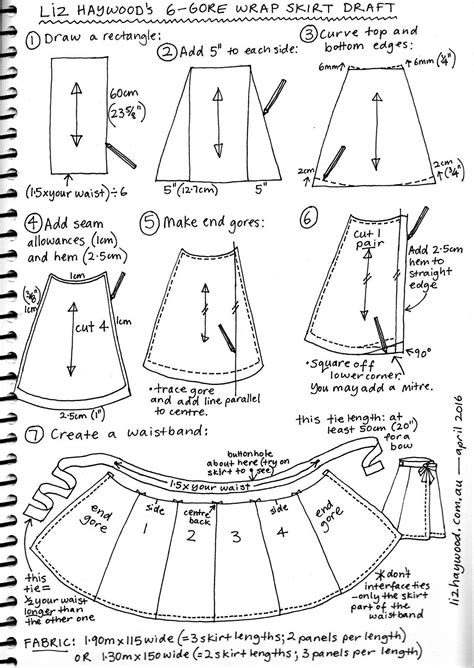 LIZ HAYWOOD'S 6-GORE WRAP SKIRT DRAFT
① Draw a rectangle:
60cm
(23⅝")
(1.5x your waist) ÷ 6
② Add 5" to each side:
5" (12.7cm)
5"
③ Curve top and
bottom edges:
6mm
6mm (¼")
2cm
2cm
(¾")
④ Add seam
allowances (1cm)
and hem (2.5cm)
1cm
(⅜")
1cm
cut 4
2.5cm (1")
⑤ Make end gores:
• trace gore
and add line parallel
to centre.
⑥
cut 1
pair
Add 2.5cm
hem to
straight
edge
90°
• Square off
lower corner.
You may add a Mitre.
⑦ Create a waistband:
this tie length: at
least 50cm (20")
for a
bow
buttonhole
about here (try on
skirt to see)
1.5x your waist
end
gore
side
1
centre
back
2
3
side
4
end
gore
this
tie =
½ your waist
longer than
the other one
*don't
interface ties
- only the skirt
part of the
waistband
lizhaywood.com.au — april 2016
FABRIC: 1.90m x 115 wide (= 3 skirt lengths; 2 panels per length)
OR 1.30m x 150 wide (= 2 skirt lengths; 3 panels per length)